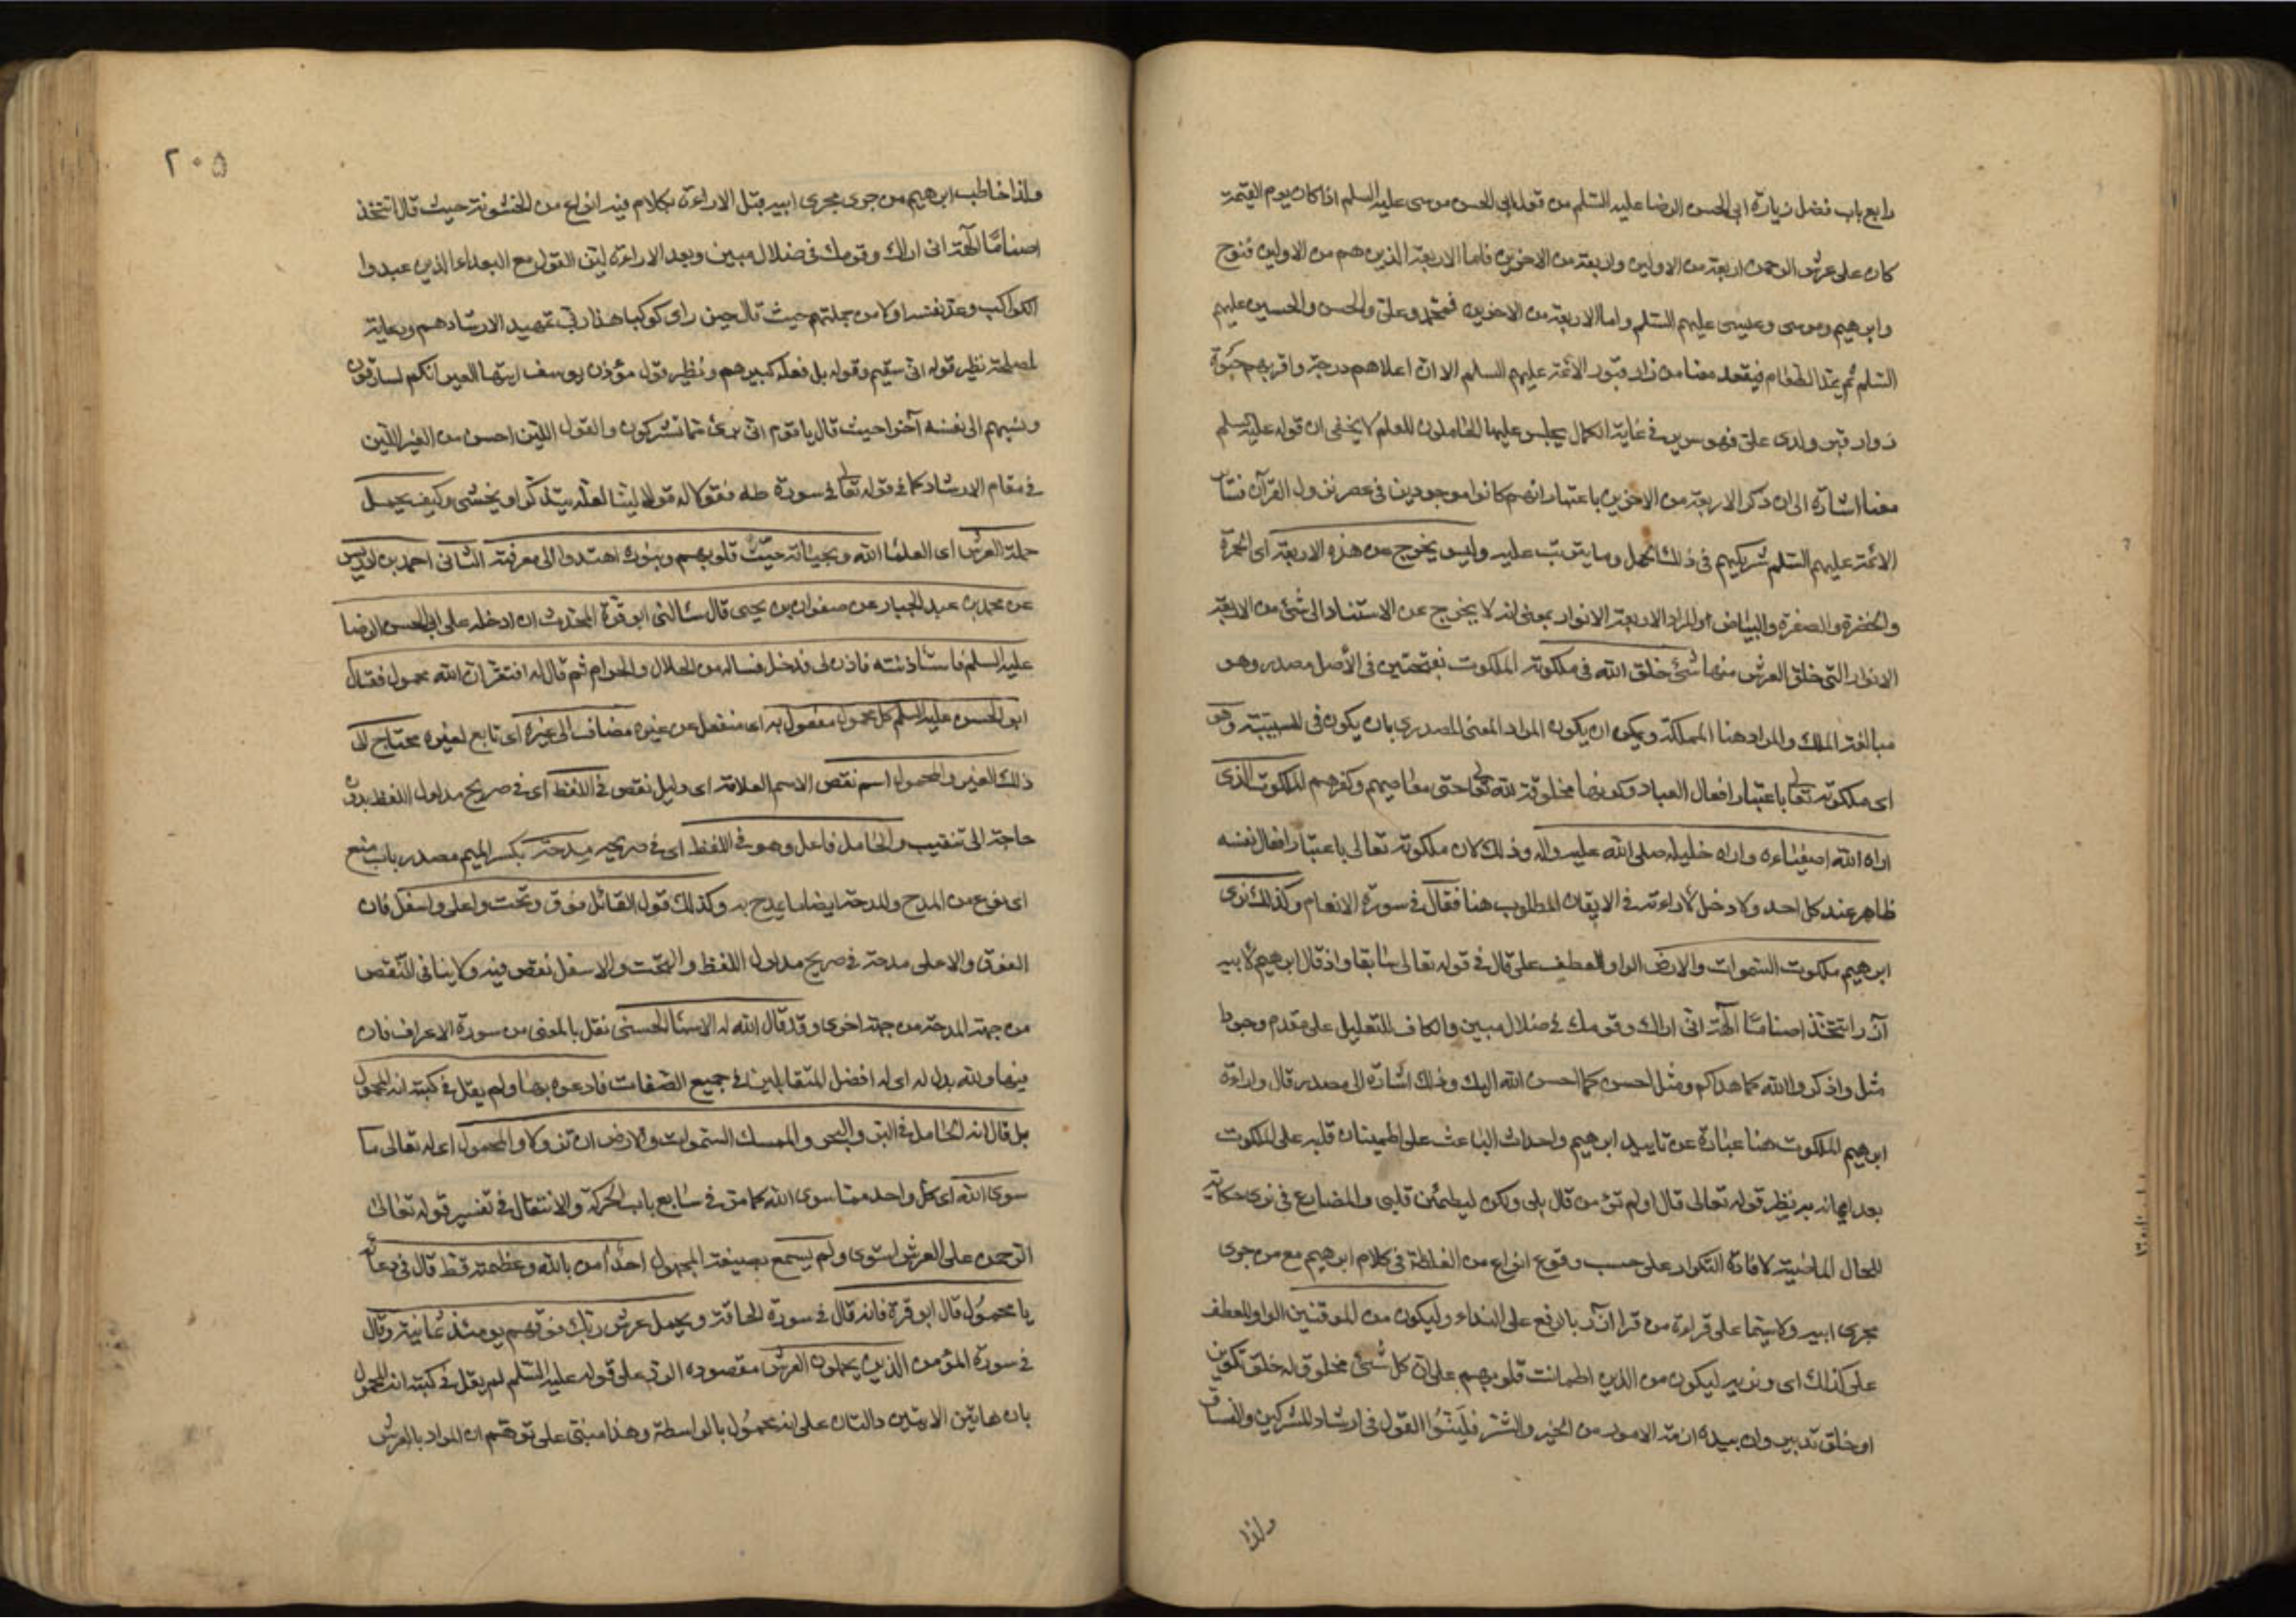 رابع باب فضل زيارة ابى الحسن الرضا عليه السّلم من قول ابى الحسن موسى عليه السلم اذا كان يوم القيمة
كان على عرش الرحمن اربعة من الاولين واربعة من الاخرين فاما الاربعة الذين هم من الاولين فنوح
وابرهيم وموسى وعيسى عليهم السّلم واما الاربعة من الاخرين فمحمّد وعلىّ والحسن والحسين عليهم
السّلم ثم يمدّ المطمار فيقعد معنا من زار قبور الائمّة عليهم السلم الا ان اعلاهم درجة واقربهم حبوة
زوار قبر ولدى علىّ فهو سرير فى غاية الكمال يجلس عليها الحاملون للعلم لا يخفى ان قوله عليه السلم
معنا اشارة الى ان ذكر الاربعة من الاخرين باعتبار انهم كانوا موجودين فى عصر نزول القرآن فسائر
الائمّة عليهم السّلم شريكهم فى ذلك الحمل وما يترتّب عليه وليس يخرج عن هذه الاربعة اى الحمرة
والخضرة والصفرة والبياض والمراد الاربعة الانوار بمعنى انه لا يخرج عن الاستناد الى شئ من الاربعة
الانوار التى خلق العرش منها شئ خلق الله فى ملكوته الملكوت بفتحتين فى الأصل مصدر وهو
مبالغة الملك والمراد هنا المملكة ويمكن ان يكون المراد المعنى المصدرى بان يكون فى للسببيّة وهو
اى ملكوته تعالى باعتبار افعال العباد وكونها مخلوقة لله تعالى حتى معاصيهم وكفرهم الملكوت الذى
اراه الله اصفياءه واراه خليله صلى الله عليه واله وذلك لان ملكوته تعالى باعتبار افعال نفسه
ظاهر عند كل احد ولا دخل لاراءته فى الايقان المطلوب هنا فقال فى سورة الانعام وكذلك نرى
ابرهيم ملكوت السّموات والارض الواو للعطف على قال فى قوله تعالى سابقا واذ قال ابرهيم لابيه
آزر اتتخذ اصنامًا آلهة انى اراك وقومك فى ضلال مبين والكاف للتعليل على مقدم وجوبا
مثل واذكروا الله كما هداكم ومثل احسن كما احسن الله اليك وذلك اشارة الى مصدر قال واراءة
ابرهيم الملكوت هنا عبارة عن تاييد ابرهيم واحداث الباعث على اطمينان قلبه على الملكوت
بعد ايمانه به نظير قوله تعالى قال اولم تؤمن قال بلى ولكن ليطمئن قلبى والمضارع فى نرى حكاية
للحال الماضية لافادة التكرار على حسب وقوع انواع من الغلظة فى كلام ابرهيم مع من جرى
مجرى ابيه ولا سيّما على قراءة من قرا آزر بالرفع على النداء وليكون من الموقنين الواو للعطف
على كذلك اى ونريه ليكون من الذين اطمانت قلوبهم على ان كل شئ مخلوق له خلق تكوين
او خلق تدبير وان بيده ازمّة الامور من الخير والشّر فليّنُوا القول فى ارشاد المشركين والفساق
ولذا
٢٠٥
ولذا خاطب ابرهيم من جرى مجرى ابيه قبل الاراءة بكلام فيه انواع من الخشونة حيث قال اتتخذ
اصنامًا آلهة انى اراك وقومك فى ضلال مبين وبعد الاراءة ليّن القول مع البعداء الذين عبدوا
الكواكب وعدّ نفسه اولا من جملتهم حيث قال حين راى كوكبا هذا ربّى تمهيد الارشادهم ورعاية
لمصلحة نظير قوله انى سقيم وقوله بل فعله كبيرهم ونظير قول مؤذن يوسف ايتها العير انكم لسارقون
ونسبهم الى نفسه آخرا حيث قال يا قوم انى برئ ممّا تشركون والقول الليّن احسن من الغير الليّن
فى مقام الارشاد كما فى قوله تعالى فى سورة طه فقولا له قولا ليّنا لعلّه يتذكّر او يخشى وكيف يحمل
حملة العرش اى العلماء الله وبحياته حيّت قلوبهم وبنوره اهتدوا الى معرفته الثانى احمد بن ادريس
عن محمد بن عبد الجبار عن صفوان بن يحيى قال سالنى ابو قرّة المحدّث ان ادخله على ابى الحسن الرضا
عليه السلم فاستاذنته فاذن لى فدخل فساله من الحلال والحرام ثم قال له افتقرّ ان الله محمول فقال
ابو الحسن عليه السلم كل محمول مفعول به اى منفعل عن غيره مضاف الى غيره اى تابع لغيره محتاج الى
ذلك الغير والمحمول اسم نقص الاسم العلامة اى دليل نقص فى اللفظ اى فى صريح مدلول اللفظ بدون
حاجة الى تنقيب والحامل فاعل وهو فى اللفظ اى فى صريحه مدحة بكسر الميم مصدر باب منع
اى نوع من المدح والمدحة ايضا ما يمدح به وكذلك قول القائل فوق وتحت واعلى واسفل فان
الفوق والاعلى مدحة فى صريح مدلول اللفظ والتحت والاسفل نقص فيه ولا ينافى النّقص
من جهة المدحة من جهة اخرى وقد قال الله له الاسماء الحسنى نقل بالمعنى من سورة الاعراف فان
فيها ولله بدل له اى له افضل المتقابلين فى جميع الصّفات فادعوه بها ولم يقل فى كتبه انه المحمول
بل قال انه الحامل فى البرّ والبحر والممسك السّموات والارض ان تزولا والمحمول اى له تعالى ما
سوى الله اى كل واحد ممّا سوى الله كما مرّ فى سابع باب الحركة والانتقال فى تفسير قوله تعالى
الرّحمن على العرش استوى ولم يسمع بصيغة المجهول احدٌ آمن بالله وعظمته قط قال فى دعائه
يا محمُول قال ابو قرة فانه قال فى سورة الحاقة ويحمل عرش ربّك فوقهم يومئذ ثمانية وقال
فى سورة المؤمن الذين يحملون العرش مقصوده الردّ على قوله عليه السّلم لم يقل فى كتبه انه المحمول
بان هاتين الايتين دالتان على انه محمُول بالواسطة وهذا مبنى على توهّم ان المراد بالعرش